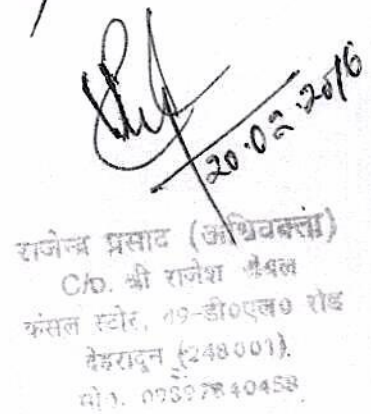 20.02.2016
राजेन्द्र प्रसाद (अधिवक्ता)
C/o. श्री राजेश
कंसल स्टोर, 19-डी०एल० रोड
देहरादून (248001).
मो०. 09397840458